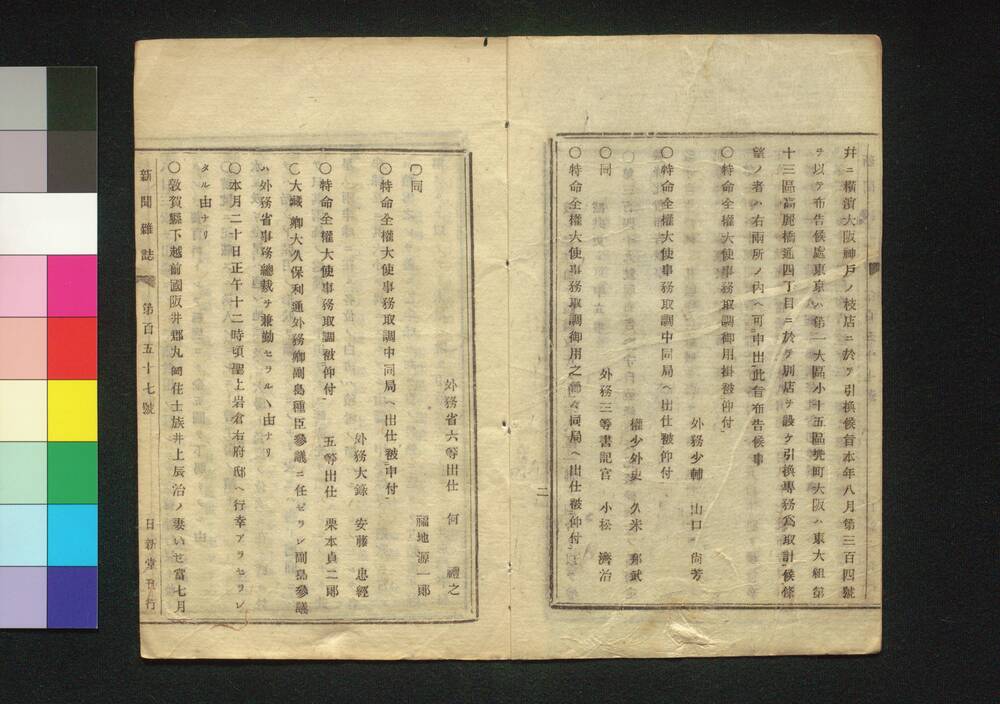 幷ニ橫濱大阪神戶ノ枝店ニ於テ引換候旨本年八月第三百四號
ヲ以テ布告候處東京ハ第一大區小十五區兜町大阪ハ東大組第
十三區高麗橋通四丁目ニ於テ別店ヲ設ケ引換專務爲取計候條
望ノ者ハ右兩所ノ內ヘ可申出此旨布告候事
外務少輔 山口 尙芳
〇特命全權大使事務取調御用掛被仰付
權少外史 久米 邦武
〇特命全權大使事務取調中同局ヘ出仕被仰付
外務三等書記官 小松 濟治
〇同
〇特命全權大使事務取調御用之節々同局ヘ出仕被仰付
二
外務省六等出仕 何 禮之
〇同 福地 源一郞
〇特命全權大使事務取調中同局ヘ出仕被申付
外務大錄 安藤 忠經
五等出仕 栗本貞二郞
〇特命全權大使事務取調被仰付
〇大藏卿大久保利通外務卿副島種臣參議ニ任ゼラレ副島參議
ハ外務省事務總裁ヲ兼勤セラルヽ由ナリ
〇本月二十日正午十二時頃聖上岩倉右府邸ヘ行幸アラセラレ
タル由ナリ
〇敦賀縣下越前國阪井郡丸岡住士族井上辰治ノ妻いせ當七月
新聞雜誌 第百五十七號 日新堂刊行